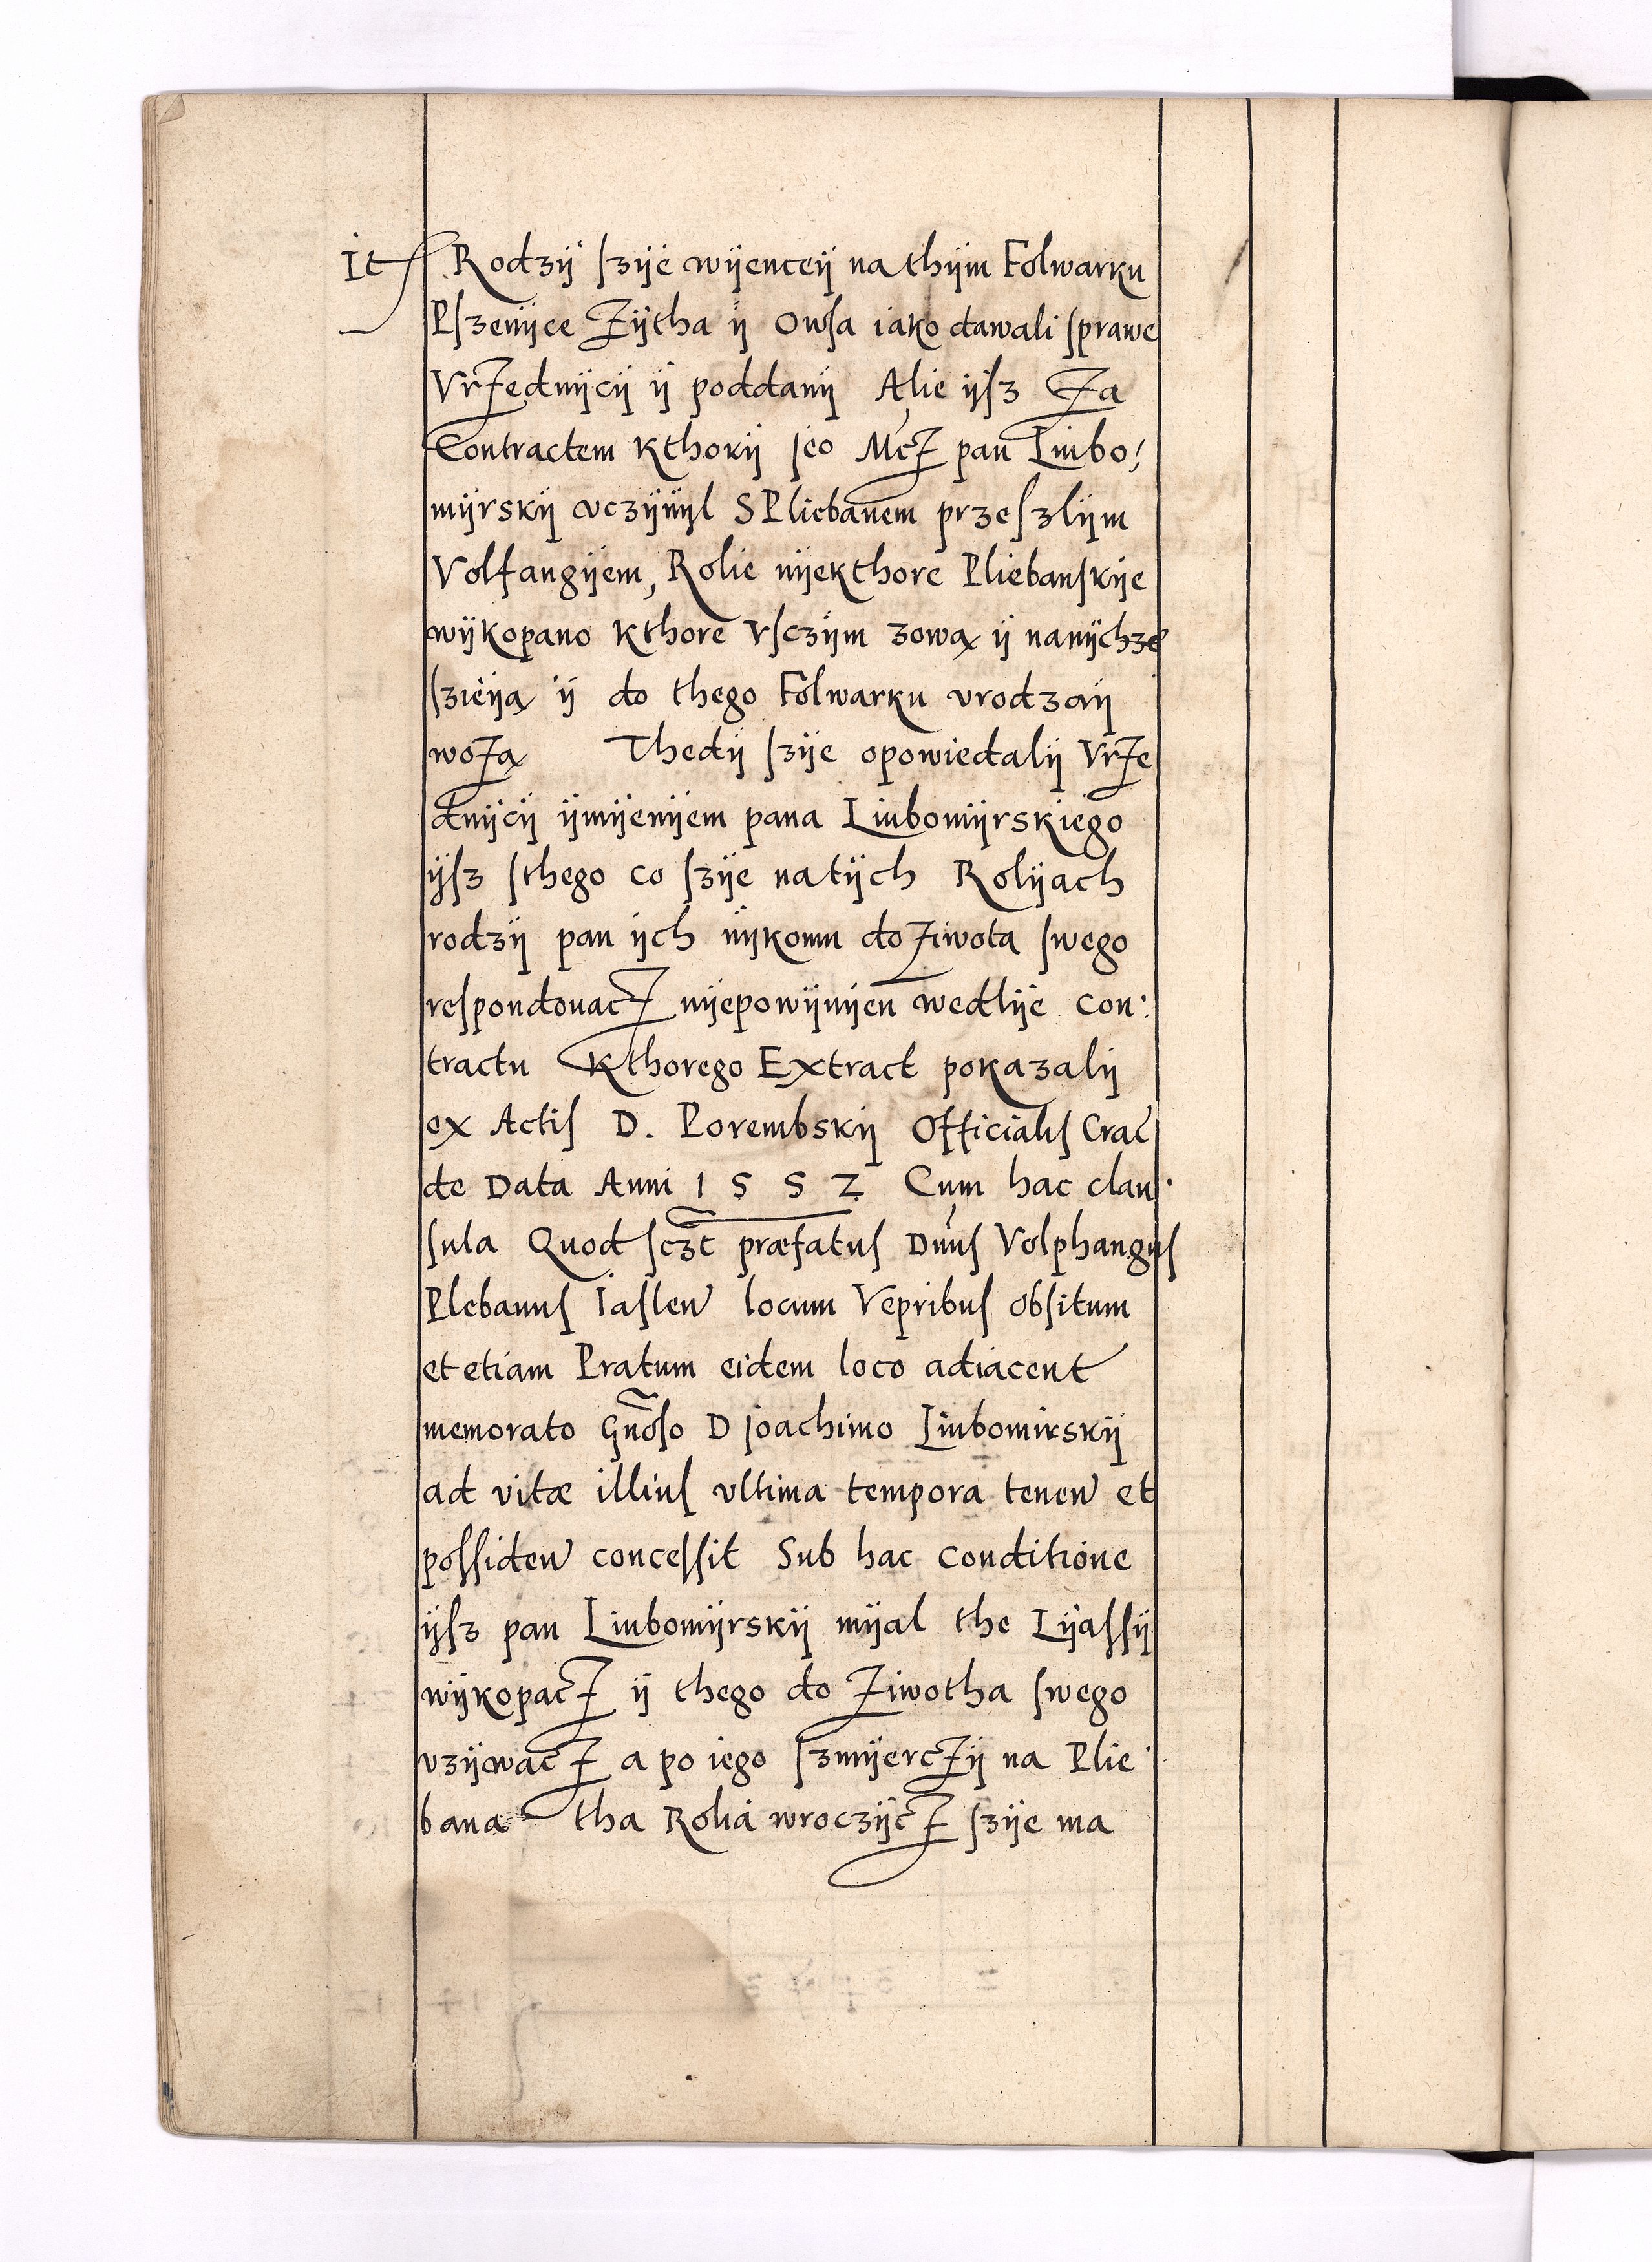 It Rodzÿ ſzÿe wÿencęÿ na thÿm Folwarku
Pſzenÿce Zÿtha ÿ Owſa iako dawali ſprawe
Vrzednÿcÿ ÿ poddanÿ Alie ÿſz Za
Contractem Kthorÿ Jeo Mcz pan Liubo/
mÿrskÿ vczÿnÿl S Pliebanem przeſzlÿm
Volfangÿem, Rolie nÿekthore Pliebanſkÿe
wÿkopano Kthore Vſczÿm zową ÿ nanÿch ze
ſzieÿą ÿ do thego Folwarku vrodzaÿ
wozą Thedÿ ſzÿe opowiedalÿ Vrze
dnÿcÿ ÿmÿenÿem pana Liubomÿrskiego
ÿſz ſthego co ſzÿe na tÿch Rolÿach
rodzÿ pan ÿch nÿkomu do ziwota ſwego
reſpondouacz nÿepowÿnÿen wedlÿe con:
tractu Kthorego Extract pokazalÿ
ex Actiſ D. Porembskÿ Officialiſ Crac
de Data Anni 1 5 5 2 Cum hac clau:
ſula Quod ſczt præfatuſ Dnuſ Volphanguſ
Plebanuſ Iaſlen locum Vepribuſ obſitum
et etiam Pratum eidem loco adiacent
memorato Gnoſo D Joachimo Liubomirskÿ
ad vitæ illiuſ vltima tempora tenen et
poſſiden conceſſit Sub hac conditione
ÿſz pan Liubomÿrskÿ mÿal the Lÿaſſÿ
wÿkopacz ÿ thego do Ziwotha ſwego
vzÿwacz a po iego ſzmÿerczÿ na Plie:
bana tha Rolia wroczÿcz ſzÿe ma